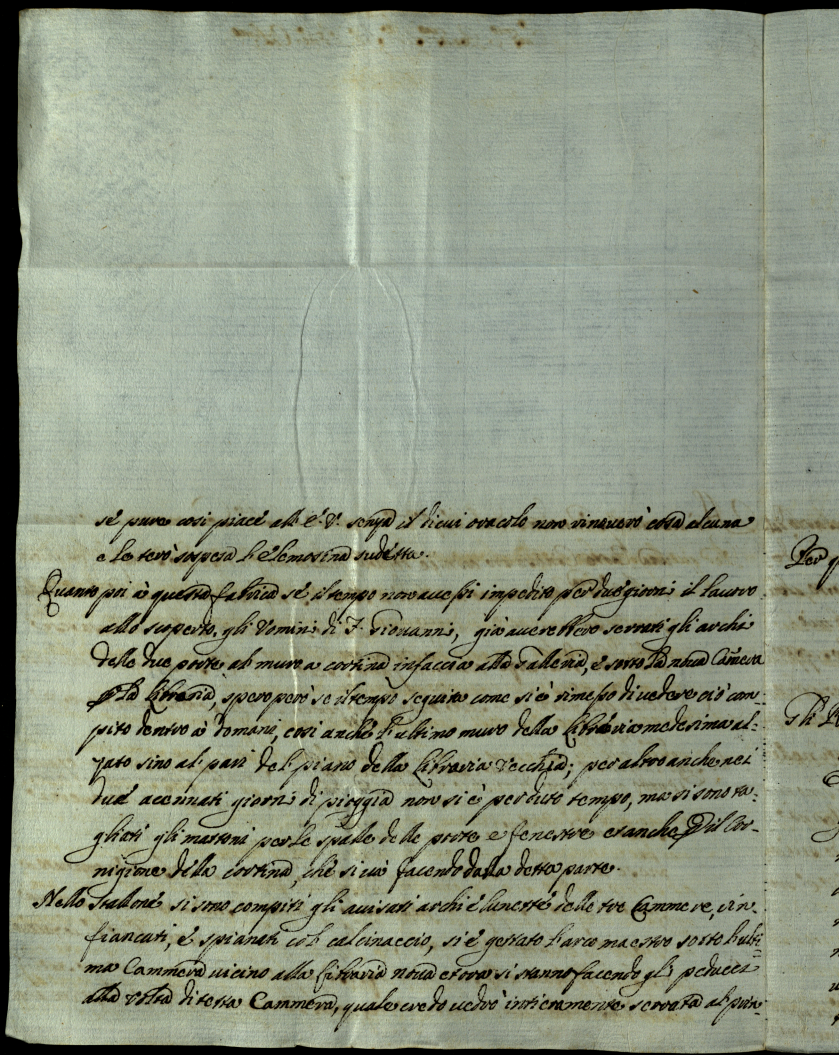 se pure cosi piace all' E. V. senza il di cui oracolo non rinoverò cosa alcuna
e le terò sospesa l'elemosina sudetta.
Quanto poi à questa fabrica se il tempo non avessi impedito per due giorni il lavoro
allo scoperto, gli Vomini di F. Giovanni, già averebbero serrati gli archi
delle due porte al muro a cortina infaccia alla Galleria, e sotto la nova Camera
p la libraria, spero però se il tempo seguita come si è rimesso di vedere ciò com-
pito dentro à domani, cosi anche l'ultimo muro della libraria medesima al-
zato sino al pari del piano della libraria vecchia; per altro anche nei
due acennati giorni di pioggia non si è perduto tempo, ma si sono ta-
gliati gli mattoni per le spalle delle porte e fenestre et anche p il Cor-
nigione della cortina, che si và facendo dalla detta parte.
Nello Stallone si sono compiti gli avisati archi è lunette delle tre Cammere, rin-
fiancati, è spianati col calcinaccio, si è gettato l'arco maestro sotto l'ulti
ma Cammera vicino alla libraria nova et ora si stanno facendo gli peducci
alla volta di detta Cammera, quale credo vedrò intieramente serrata al prin-
Per
Gli